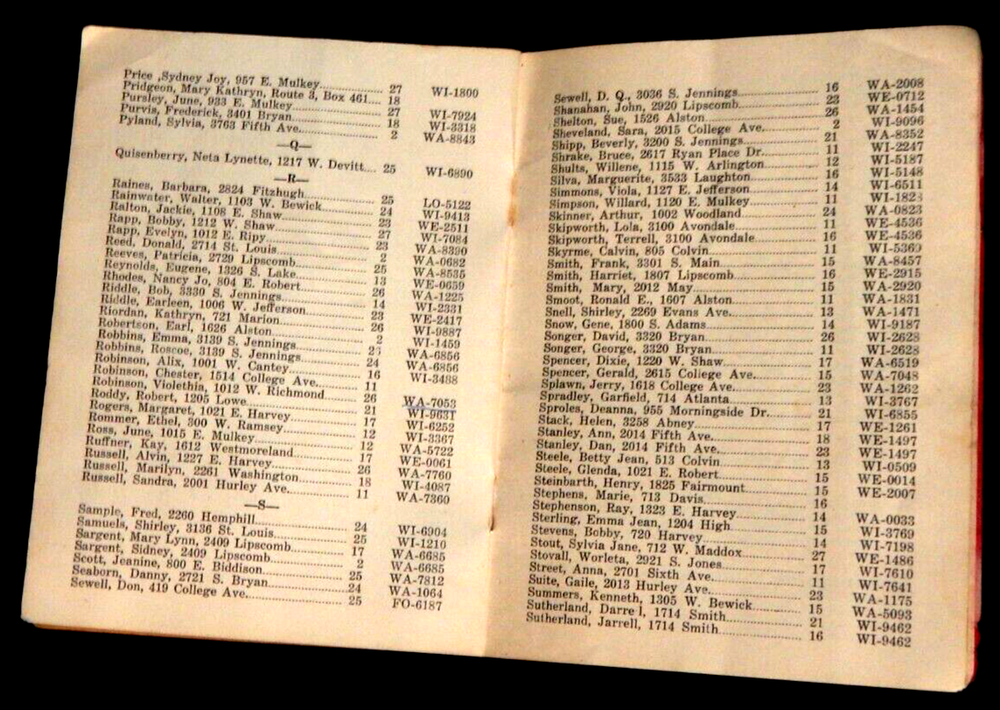 Price ,Sydney Joy, 957 E. Mulkey 27 WI-1800
Pridgeon, Mary Kathryn, Route 3, Box 461 18
Pursley, June, 933 E. Mulkey 27 WI-7924
Purvis, Frederick, 3401 Bryan 18 WI-3318
Pyland, Sylvia, 3763 Fifth Ave. 2 WA-8843
—Q—
Quisenberry, Neta Lynette, 1217 W. Devitt 25 WI-6890
—R—
Raines, Barbara, 2824 Fitzhugh 25 LO-5122
Rainwater, Walter, 1103 W. Bewick 24 WI-9413
Ralton, Jackie, 1108 E. Shaw 23 WE-2511
Rapp, Bobby, 1212 W. Shaw 27 WI-7084
Rapp, Evelyn, 1012 E. Ripy 23 WA-8390
Reed, Donald, 2714 St. Louis 2 WA-0682
Reeves, Patricia, 2729 Lipscomb 25 WA-8535
Reynolds, Eugene, 1326 S. Lake 13 WE-0659
Rhodes, Nancy Jo, 804 E. Robert 26 WA-1225
Riddle, Bob, 3330 S. Jennings 14 WI-2331
Riddle, Earleen, 1006 W. Jefferson 23 WE-2417
Riordan, Kathryn, 721 Marion 26 WI-9887
Robertson, Earl, 1626 Alston 2 WI-1459
Robbins, Emma, 3139 S. Jennings 23 WA-6856
Robbins, Roscoe, 3139 S. Jennings 24 WA-6856
Robinson, Alix, 1001 W. Cantey 16 WI-3488
Robinson, Chester, 1514 College Ave. 11
Robinson, Violethia, 1012 W. Richmond 26 WA-7053
Roddy, Robert, 1205 Lowe 21 WI-9631
Rogers, Margaret, 1021 E. Harvey 17 WI-6252
Rommer, Ethel, 300 W. Ramsey 12 WI-3367
Ross, June, 1015 E. Mulkey 12 WA-5722
Ruffner, Kay, 1612 Westmoreland 17 WE-0061
Russell, Alvin, 1227 E. Harvey 26 WA-7760
Russell, Marilyn, 2261 Washington 18 WI-4087
Russell, Sandra, 2001 Hurley Ave. 11 WA-7360
—S—
Sample, Fred, 2260 Hemphill 24 WI-6904
Samuels, Shirley, 3136 St. Louis 25 WI-1210
Sargent, Mary Lynn, 2409 Lipscomb 17 WA-6685
Sargent, Sidney, 2409 Lipscomb 2 WA-6685
Scott, Jeanine, 800 E. Biddison 25 WA-7812
Seaborn, Danny, 2721 S. Bryan 24 WA-1064
Sewell, Don, 419 College Ave. 25 FO-6187
Sewell, D. Q., 3036 S. Jennings 16 WA-2008
Shanahan, John, 2920 Lipscomb 23 WE-0712
Shelton, Sue, 1526 Alston 26 WA-1454
Sheveland, Sara, 2015 College Ave. 2 WI-9096
Shipp, Beverly, 3200 S. Jennings 21 WA-8352
Shrake, Bruce, 2617 Ryan Place Dr. 11 WI-2247
Shults, Willene, 1115 W. Arlington 12 WI-5187
Silva, Marguerite, 3533 Laughton 16 WI-5148
Simmons, Viola, 1127 E. Jefferson 14 WI-6511
Simpson, Willard, 1120 E. Mulkey 11 WI-1823
Skinner, Arthur, 1002 Woodland 24 WA-0823
Skipworth, Lola, 3100 Avondale 11 WE-4536
Skipworth, Terrell, 3100 Avondale 16 WE-4536
Skyrme, Calvin, 805 Colvin 11 WI-5369
Smith, Frank, 3301 S. Main 15 WA-8457
Smith, Harriet, 1807 Lipscomb 16 WE-2915
Smith, Mary, 2012 May 15 WA-2920
Smoot, Ronald E., 1607 Alston 11 WA-1831
Snell, Shirley, 2269 Evans Ave. 13 WA-1471
Snow, Gene, 1800 S. Adams 14 WI-9187
Songer, David, 3320 Bryan 26 WI-2628
Songer, George, 3320 Bryan 11 WI-2628
Spencer, Dixie, 1220 W. Shaw 17 WA-6519
Spencer, Gerald, 2615 College Ave. 15 WA-7048
Splawn, Jerry, 1618 College Ave. 23 WA-1262
Spradley, Garfield, 714 Atlanta 13 WI-3767
Sproles, Deanna, 955 Morningside Dr. 21 WI-6855
Stack, Helen, 3258 Abney 17 WE-1261
Stanley, Ann, 2014 Fifth Ave. 18 WE-1497
Stanley, Dan, 2014 Fifth Ave. 23 WE-1497
Steele, Betty Jean, 513 Colvin 13 WI-0509
Steele, Glenda, 1021 E. Robert 15 WE-0014
Steinbarth, Henry, 1825 Fairmount 15 WE-2007
Stephens, Marie, 713 Davis 16
Stephenson, Ray, 1323 E. Harvey 14 WA-0033
Sterling, Emma Jean, 1204 High 15 WI-3769
Stevens, Bobby, 720 Harvey 14 WI-7198
Stout, Sylvia Jane, 712 W. Maddox 27 WE-1486
Stovall, Worleta, 2921 S. Jones 17 WI-7610
Street, Anna, 2701 Sixth Ave. 11 WI-7641
Suite, Gaile, 2013 Hurley Ave. 23 WA-1175
Summers, Kenneth, 1305 W. Bewick 15 WA-5093
Sutherland, Darre l, 1714 Smith 21 WI-9462
Sutherland, Jarrell, 1714 Smith 16 WI-9462